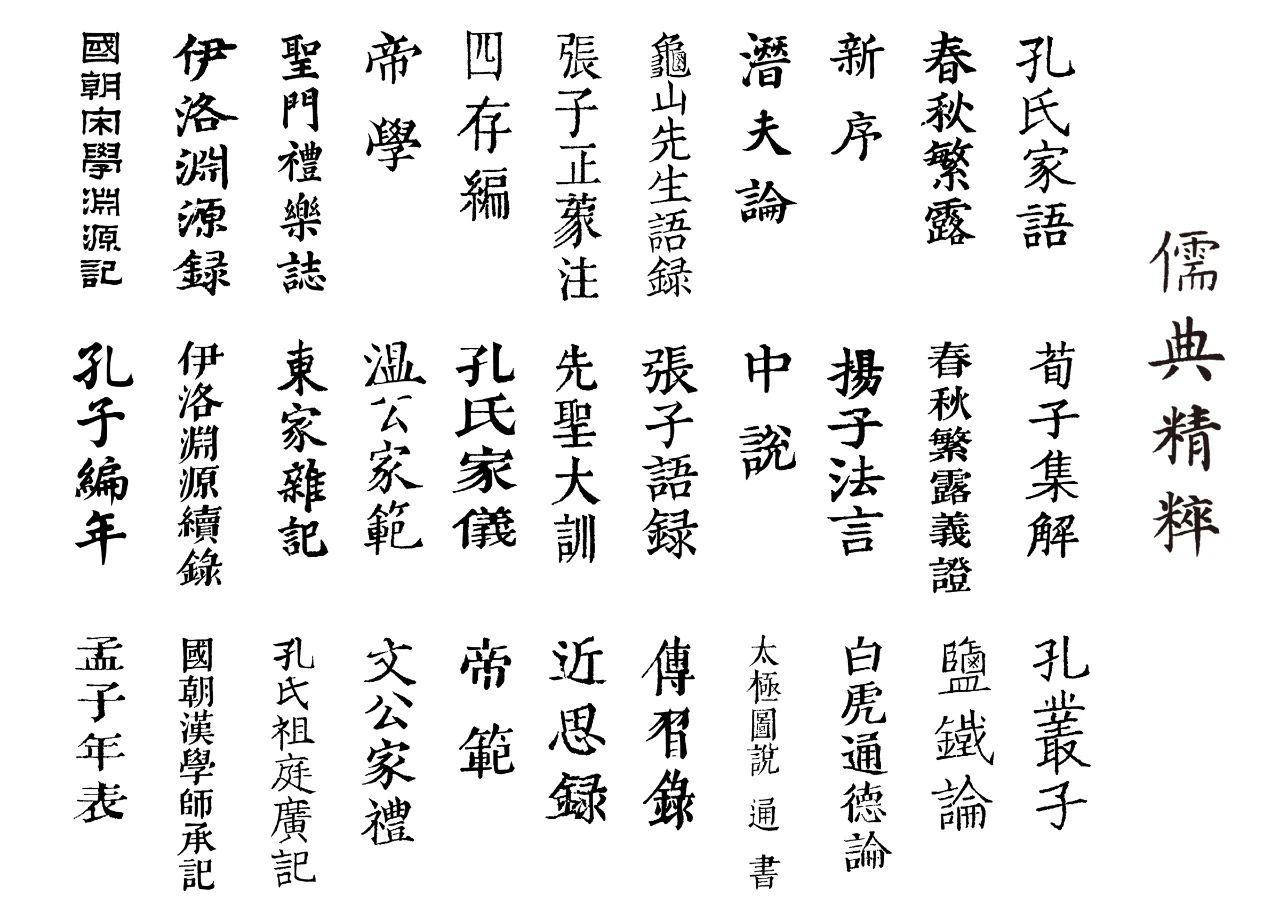 儒典精粹
孔氏家語
荀子集解
孔叢子
春秋繁露
春秋繁露義證
鹽鐵論
新序
揚子法言
白虎通德論
潛夫論
中說
太極圖說 通書
龜山先生語録
張子語録
傳習錄
張子正蒙注
先聖大訓
近思録
四存編
孔氏家儀
帝範
帝學
温公家範
文公家禮
聖門禮樂誌
東家雜記
孔氏祖庭廣記
伊洛淵源録
伊洛淵源續錄
國朝漢學師承記
國朝宋學淵源記
孔子編年
孟子年表